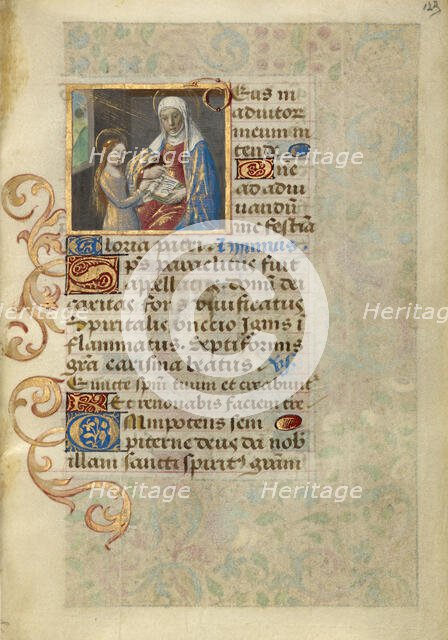 123
Deus in
adiutor
meum in
tende
Dne
ad adiu
uandũ
me festia
Gloria patri . Ymnus .
Sps paraclitus fuit
appellatus. donũ dei
caritas fons viuificatus
Spiritalis onctio ignis i
flammatus . Septiformis
gra carisma beatus . vs̃
Emitte spm̃ tuum et creabunt
Et renouabis faciem tre
Omnipotens sem
piterne deus da nob
illam sancti spirits gram
Heritage
Heritage
Heritage
Heritage
Heritage
Heritage
Heritage
Heritage